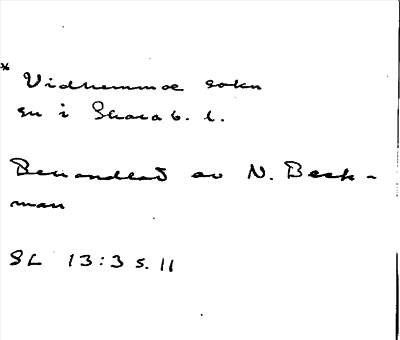 * Vidhemmæ sokn
sn i Skarab. l.
Behandlad av N. Beck-
man
SL 13:3 s. 11